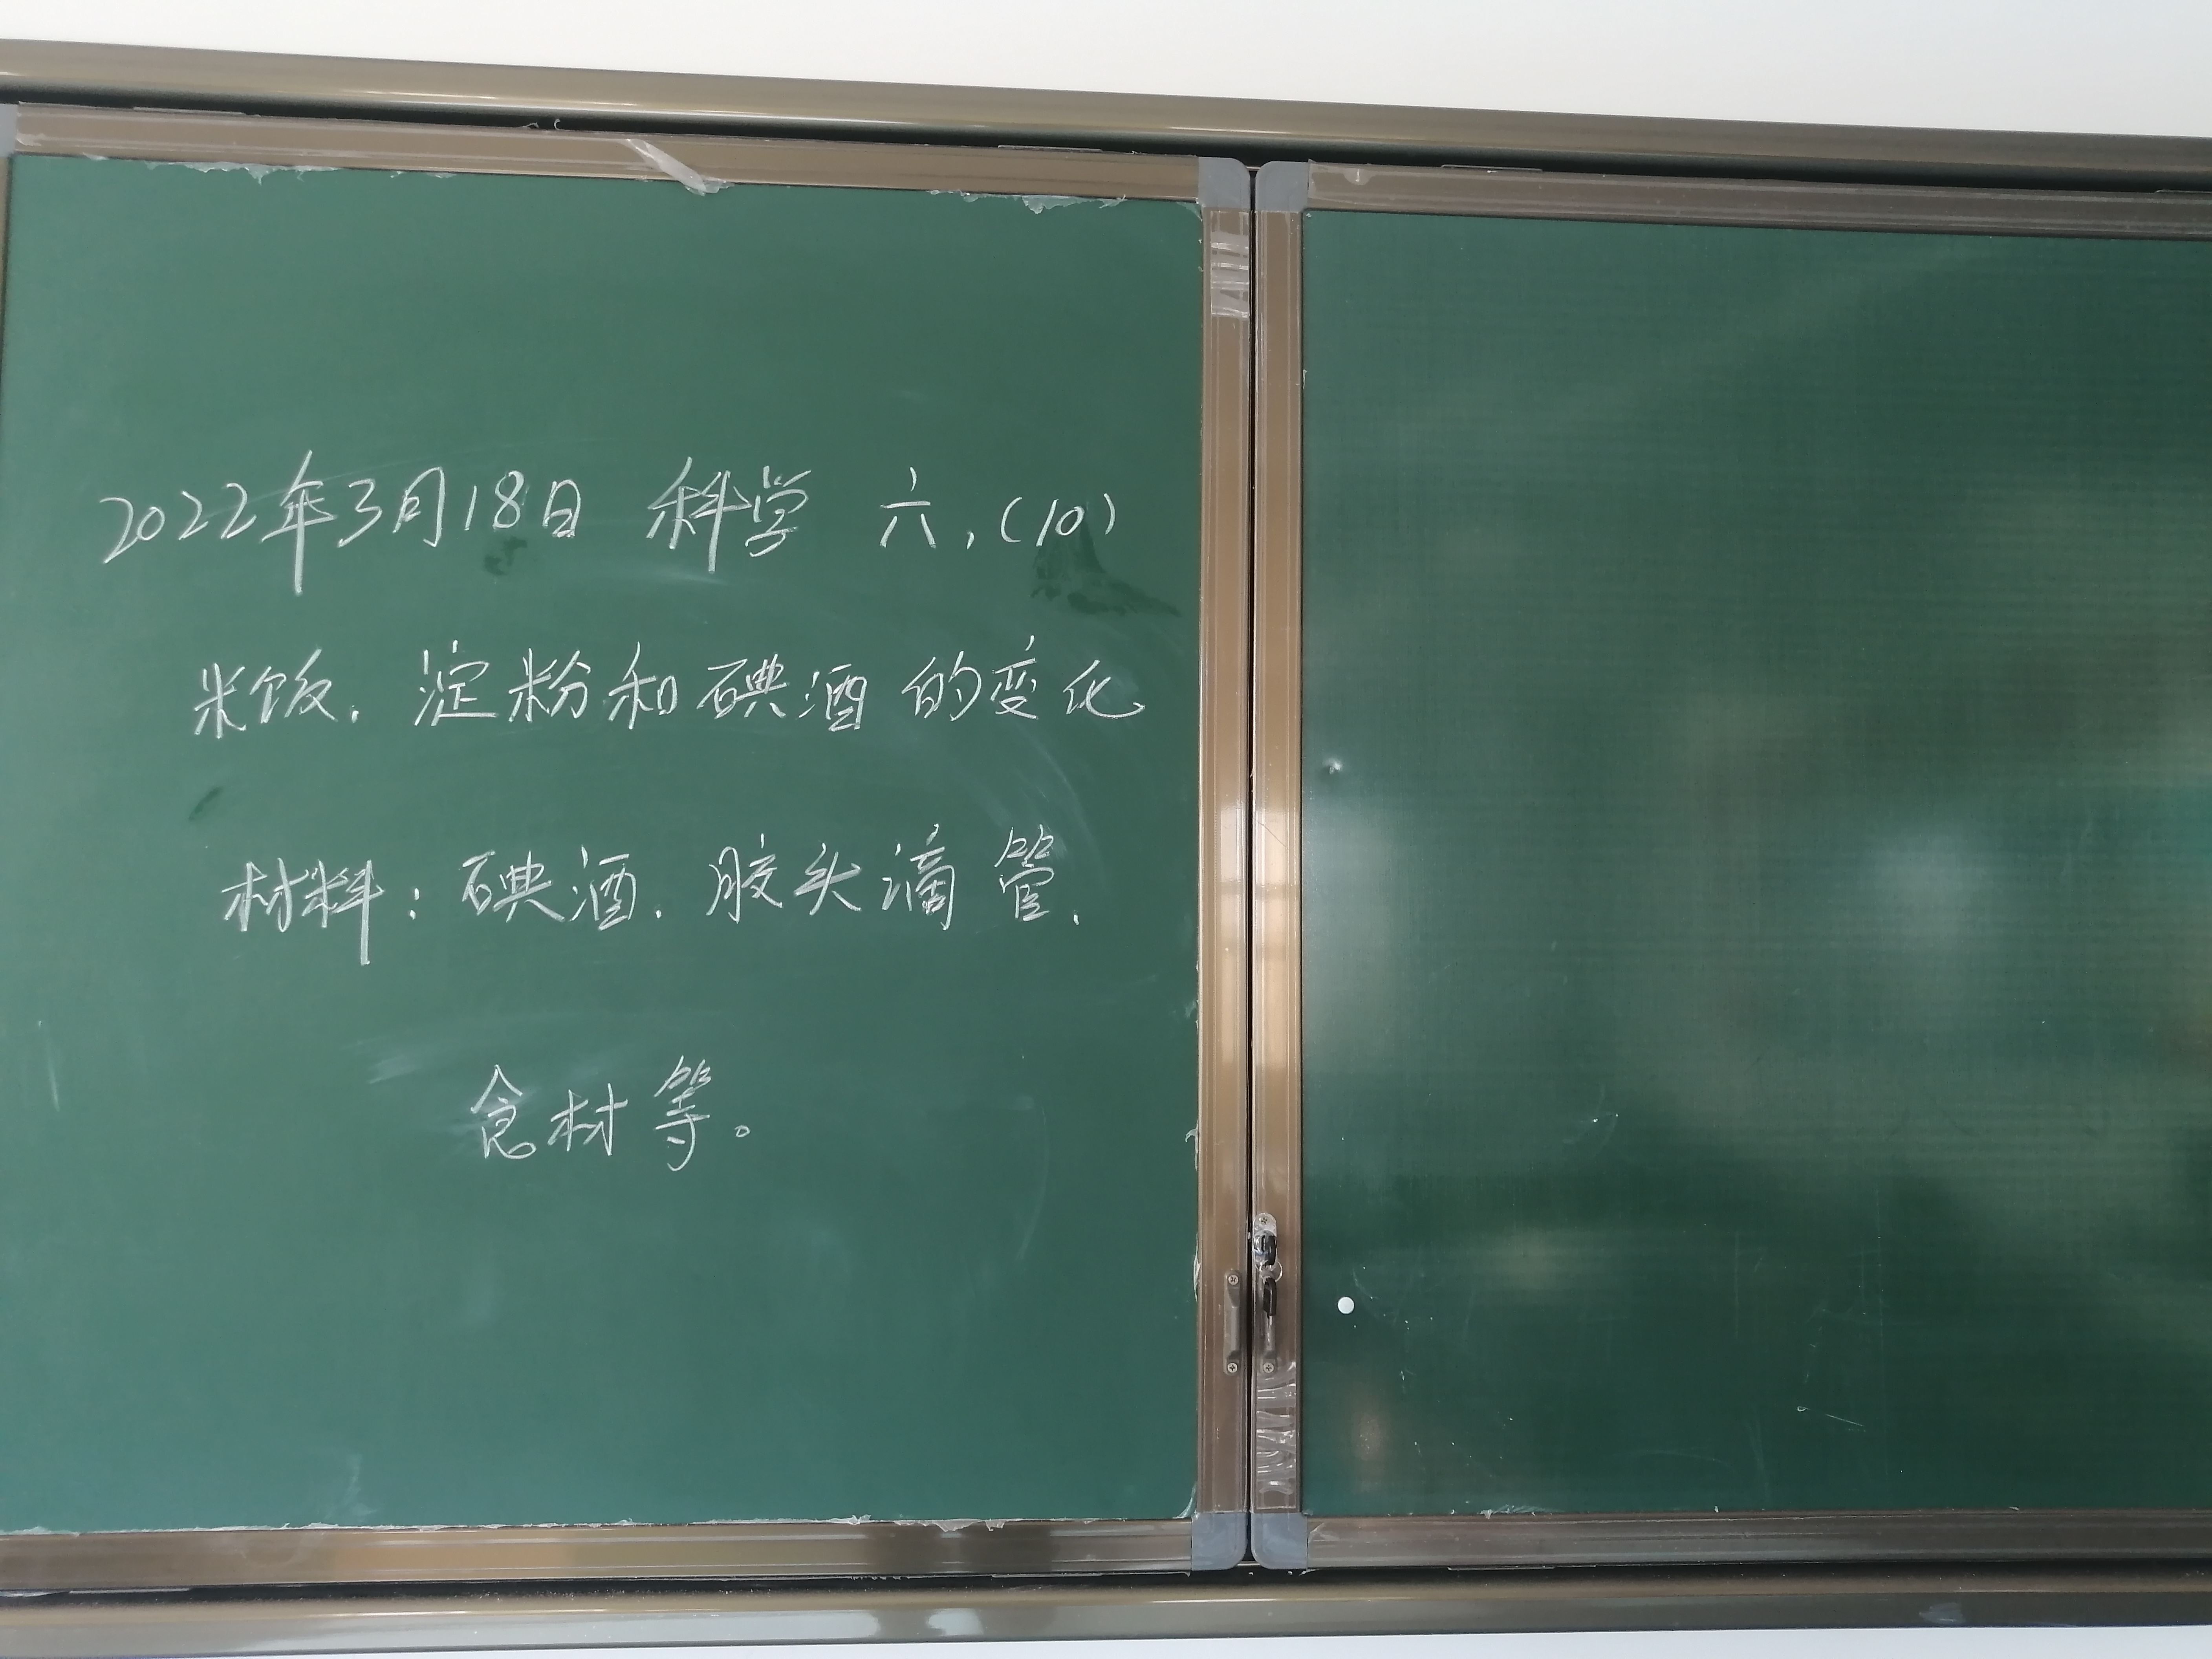 2022年3月18日 科学 六,(10)
米饭.淀粉和碘酒的变化
材料:碘酒.胶头滴管.
食材等。